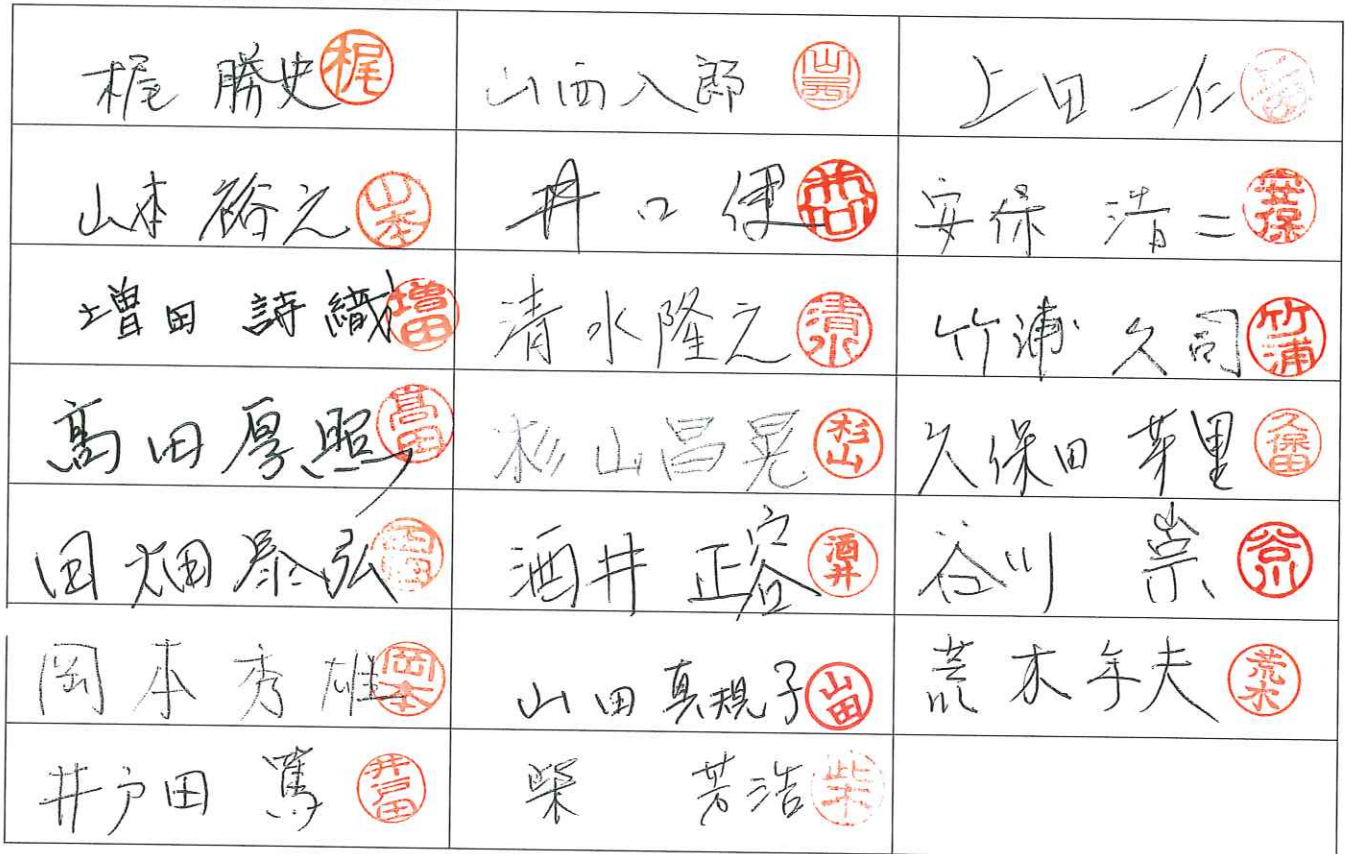 梶 勝史 梶 山西八郎 山西 上田 一仁
山本 裕之 山本 井口 健 井口 安保 浩二 安保
増田 詩織 増田 清水隆之 清水 竹浦 久司 竹浦
髙田厚照 髙田 杉山昌晃 杉山 久保田 芽里 久保田
田畑泰弘 田畑 酒井 正容 酒井 谷川 崇 谷川
岡本秀雄 岡本 山田真規子 山田 荒木年夫 荒木
井戸田 篤 井戸田 柴 芳浩 柴